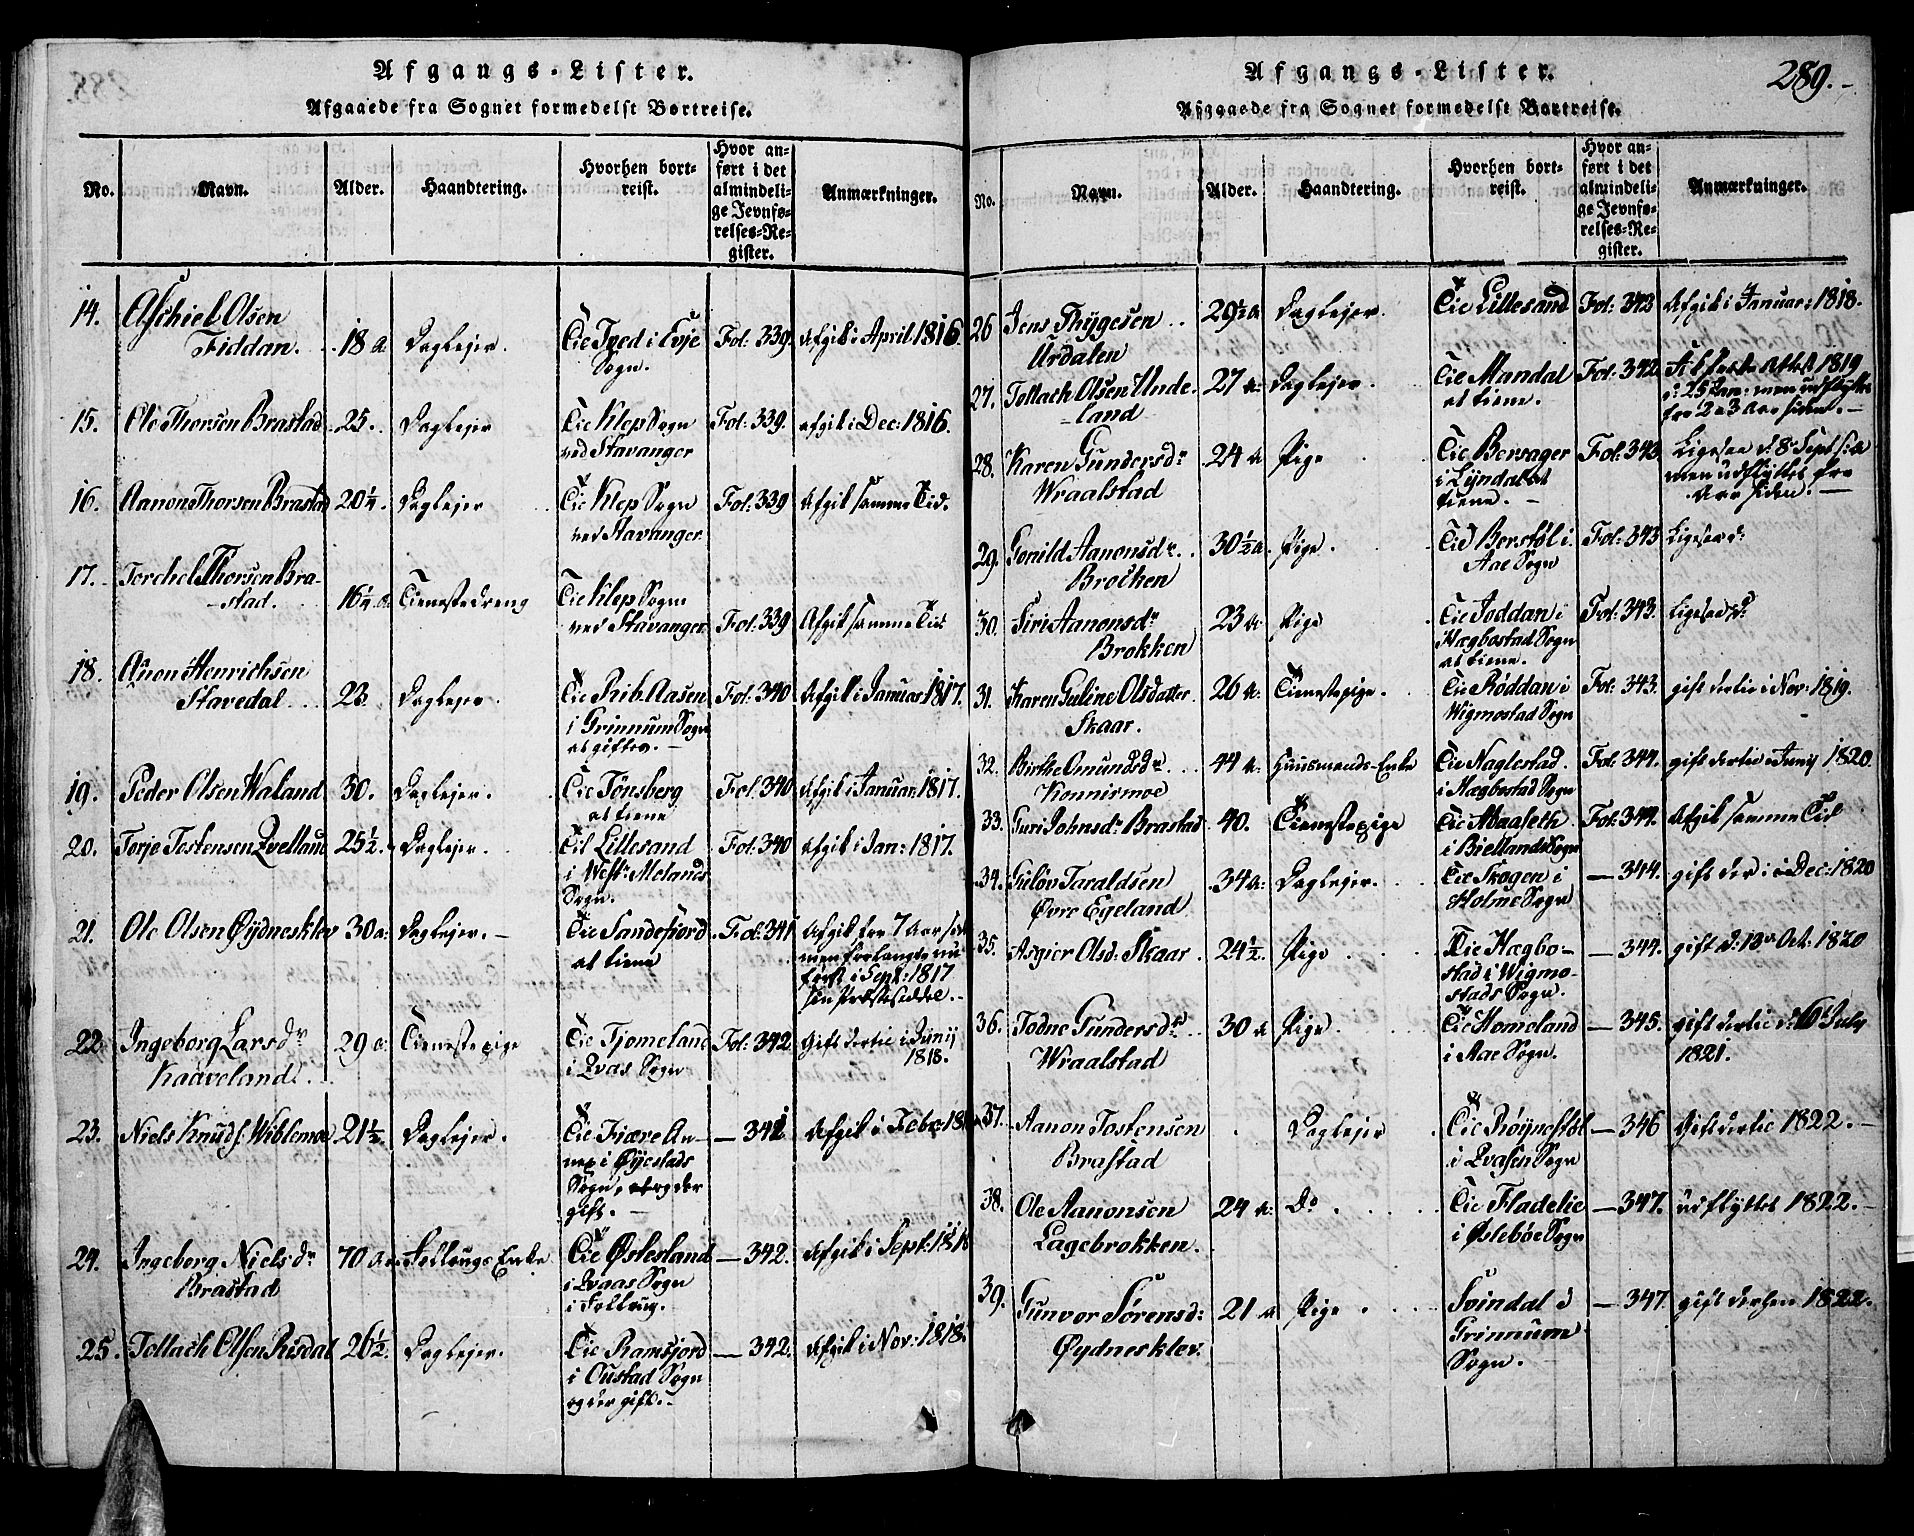 Afgangs-Lister.
Afgaaede fra Sognet formedelst Bortreise.
No. Navn. Alder. Haandtering. Hvorhen bortreist. Hvor anført i det almindelige Jevnførelses-Register. Anmærkninger.
14. Aschiel Olsen Fiddan. 18 a Dagleier. Til Tved i Evje Sogn. Fol: 339. Afgik i April 1816.
15. Ole Thorsen Brastad 25. Dagleier Til Klep Sogn ved Stavanger Fol: 339. afgik i Dec: 1816.
16. Aanon Thorsen Brastad 20¼. Dagleier Til Klep Sogn ved Stavanger Fol: 339 Afgik samme Tid.
17. Torchel Thorsen Brastad. 16¼ a. Tienestedreng Til Klep Sogn ved Stavanger Fol: 339 Afgik samme Tid
18. Anon Henrichsen Stavedal 23 Dagleier. Til Rib. Aasen i Grinnum Sogn at giftes. Fol: 340 Afgik i Januar 1817.
19. Peder Olsen Waland 30. Dagleier. Til Tønsberg at tiene Fol: 340 Afgik i Januar 1817.
20. Torje Tostensen Qvelland 25½. Dagleier. Til Lillesand i West: Melands Sogn. Fol: 340 Afgik i Jan: 1817.
21. Ole Olsen Øydneskley 30 a: Dagleier. Til Sandefiord at tiene Fol: 341 Afgik for 7 Aar siden men forlangte nu først i Sept: 1817 sin Præsteseddel.
22 Ingeborg Larsdr Kaaveland. 29 a: Tienestepige Til Tjomeland i Qvas Sogn Fol: 342 Gift dertil i Junij 1818.
23. Niels Knuds. Wiblemoe 21½. Dagleier. Til Fiære Annex i Øyestads Sogn, og der gift. — 342 Afgik i Febr: 18
24. Ingeborg Nielsdr Brastad 70 a: Follougs Enke Til Øslesland i Qvaas Sogn i Follaug. — 342. Afgik i Sept: 1818
25. Tollach Olsen Risdal 26½. Dagleier. Til Ramsjord i Oustad Sogn og der gift. — 342. Afgik i Nov: 1818.
Afgangs-Lister. 289.
Afgaaede fra Sognet formedelst Bortreise.
No. Navn. Alder. Haandtering. Hvorhen bortreist. Hvor anført i det almindelige Jevnførelses-Register. Anmærkninger.
26 Jens Thygesen Urdalen 29½ a Dagleier. Til Lillesand Fol: 342 Afgik i Januar: 1818.
27. Tollach Olsen Undeland 27 a: Dagleier. Til Mandal at tiene. Fol: 342 Attest 1819 d: 25 Jan: men udflyttet for 2 a 3 Aar siden.
28. Karen Gundersdr Wraalstad 24 a Pige Til Bersager i Lyndal at tiene. Fol: 343 Ligesaa d. 8 Sept: men udflyttet for Aar siden.
29. Gonild Aanonsdr Brocken 30½ a. Pige. Til Berstøl i Aae Sogn Fol: 343 Ligesaa d:
30. Siri Aanonsdr Brokken 23 a: Pige Til Joddan i Hægbostad Sogn at tiene. Fol: 343. Ligesaa
31. Karen Guline Olsdatter Skaar. 26 a: Tienestepige. Til Røddan i Wigmostad Sogn Fol: 343. gift dertil i Nov: 1819.
32. Birthe Omundsdr Konnismoe 44 a: Huusmands-Enke Til Naglestad i Hægbostad Sogn Fol: 344. gift dertil i Junij 1820.
33. Guri Johnsdr Brastad 40. Tienestepige Til Maaseth i Biellands Sogn Fol: 344. Afgik samme Tid
34. Guløv Taraldsen Øvre Egeland 34 a: Dagleier. Til Skogen i Holme Sogn — 344. gift der i Dec: 1820
35. Asgier Olsd: Skaar 24½. Pige Til Hægbostad i Wigmostads Sogn. — 344. gift d: 13 Oct: 1820
36. Todne Gundersdr Wraalstad 30 a Pige. Til Homeland i Aae Sogn. — 345. gift dertil d: 6 July 1821.
37. Aanon Tostensen Brastad Dagleier Til Røynestøl i Qvasen Sogn — 346 Gift dertil 1822.
38. Ole Aanonsen Lagebrokken. 24 a: Do Til Fladelie i Øslebøe Sogn — 347. udflyttet 1822.
39. Gunvor Sørensd: Øydneskley. 21 a Pige. Svindal i Grinnum Sogn. — 347. gift derhen 1822.